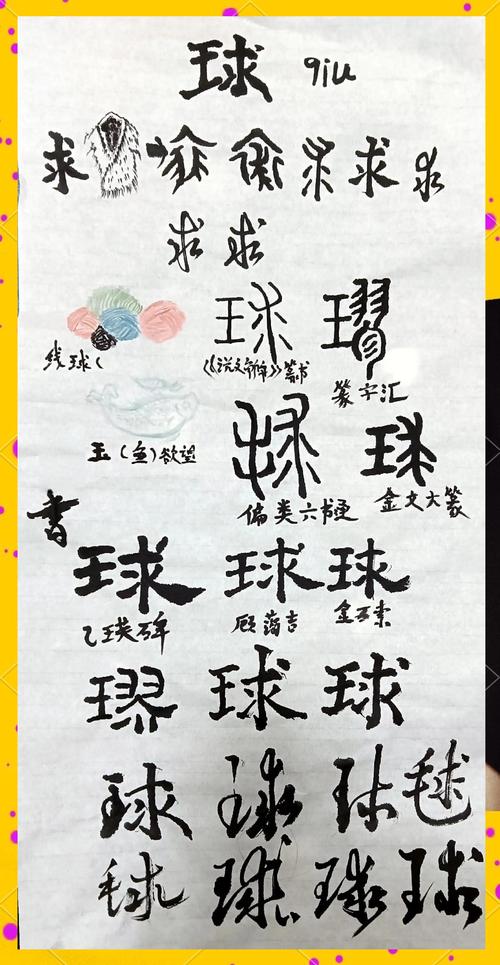 球 qiu
求 求 求
求 求
球
线球(
《说文解字》篆书
篆字汇
玉(鱼)欲望
球
偏类六书通
金文大篆
書
球 球 球
乙瑛碑 顾蔼吉 金石索
璆 球 球
球 球 球 毬
毬 球 球 球